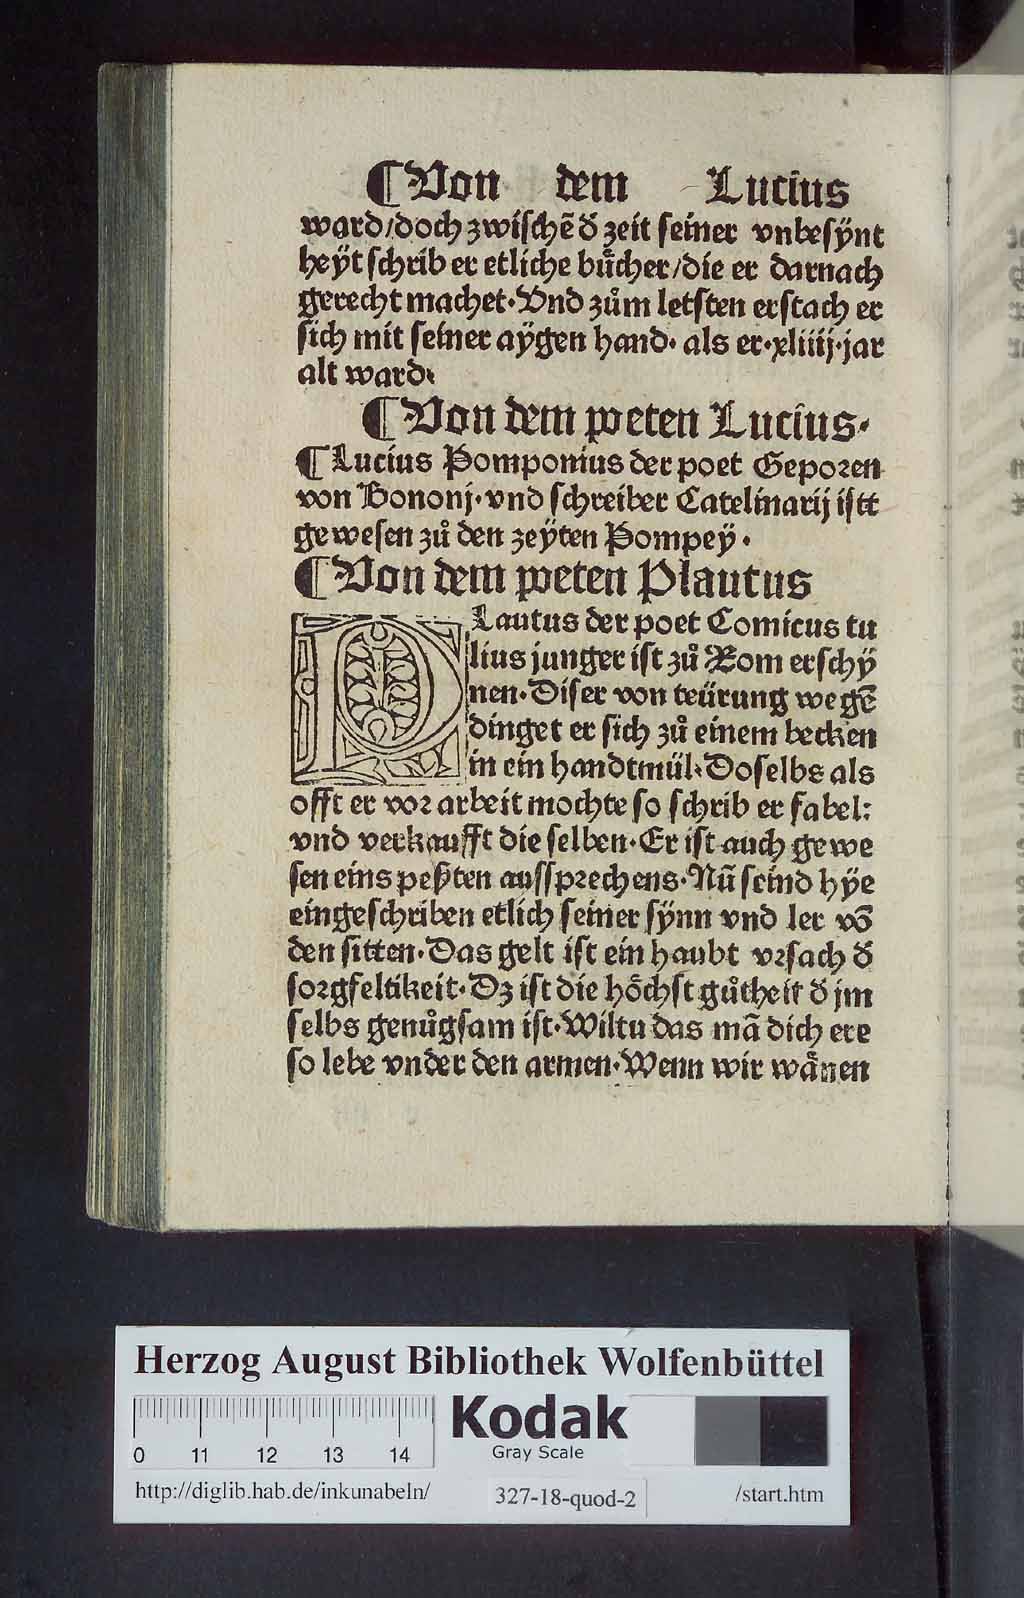 ¶Von dem Lucius
ward/doch zwischē d̕ zeit seiner vnbesÿnt
heÿt schrib er etliche bůcher/die er darnach
gerecht machet·Vnd zům letsten erstach er
sich mit seiner aÿgen hand· als er·xliiij·jar
alt ward·
¶Von dem poeten Lucius·
¶Lucius Pomponius der poet Geporen
von Bononj·vnd schreiber Catelinarij istt
gewesen zů den zeÿten Pompeÿ·
¶Von dem poeten Plautus
PLautus der poet Comicus tu
lius junger ist zů Rom erschÿ
nen·Diser von teürung wegē
dinget er sich zů einem becken
in ein handtmül·Doselbs als
offt er vor arbeit mochte so schrib er fabel:
vnd verkaufft die selben·Er ist auch gewe
sen eins peßten aussprechens·Nū seind hÿe
eingeschriben etlich seiner sÿnn vnd ler vō
den sitten·Das gelt ist ein haubt vrsach d̕
sorgfeltikeit·Dz ist die hőchst gůtheit d̕ jm
selbs genůgsam ist·Wiltu das mā dich ere
so lebe vnder den armen·Wenn wir wånen
Herzog August Bibliothek Wolfenbüttel
0 11 12 13 14
Kodak
Gray Scale
http://diglib.hab.de/inkunabeln/ 327-18-quod-2 /start.htm